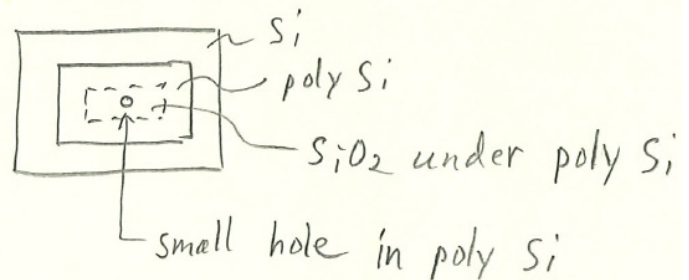 Si
poly Si
SiO₂ under poly Si
small hole in poly Si